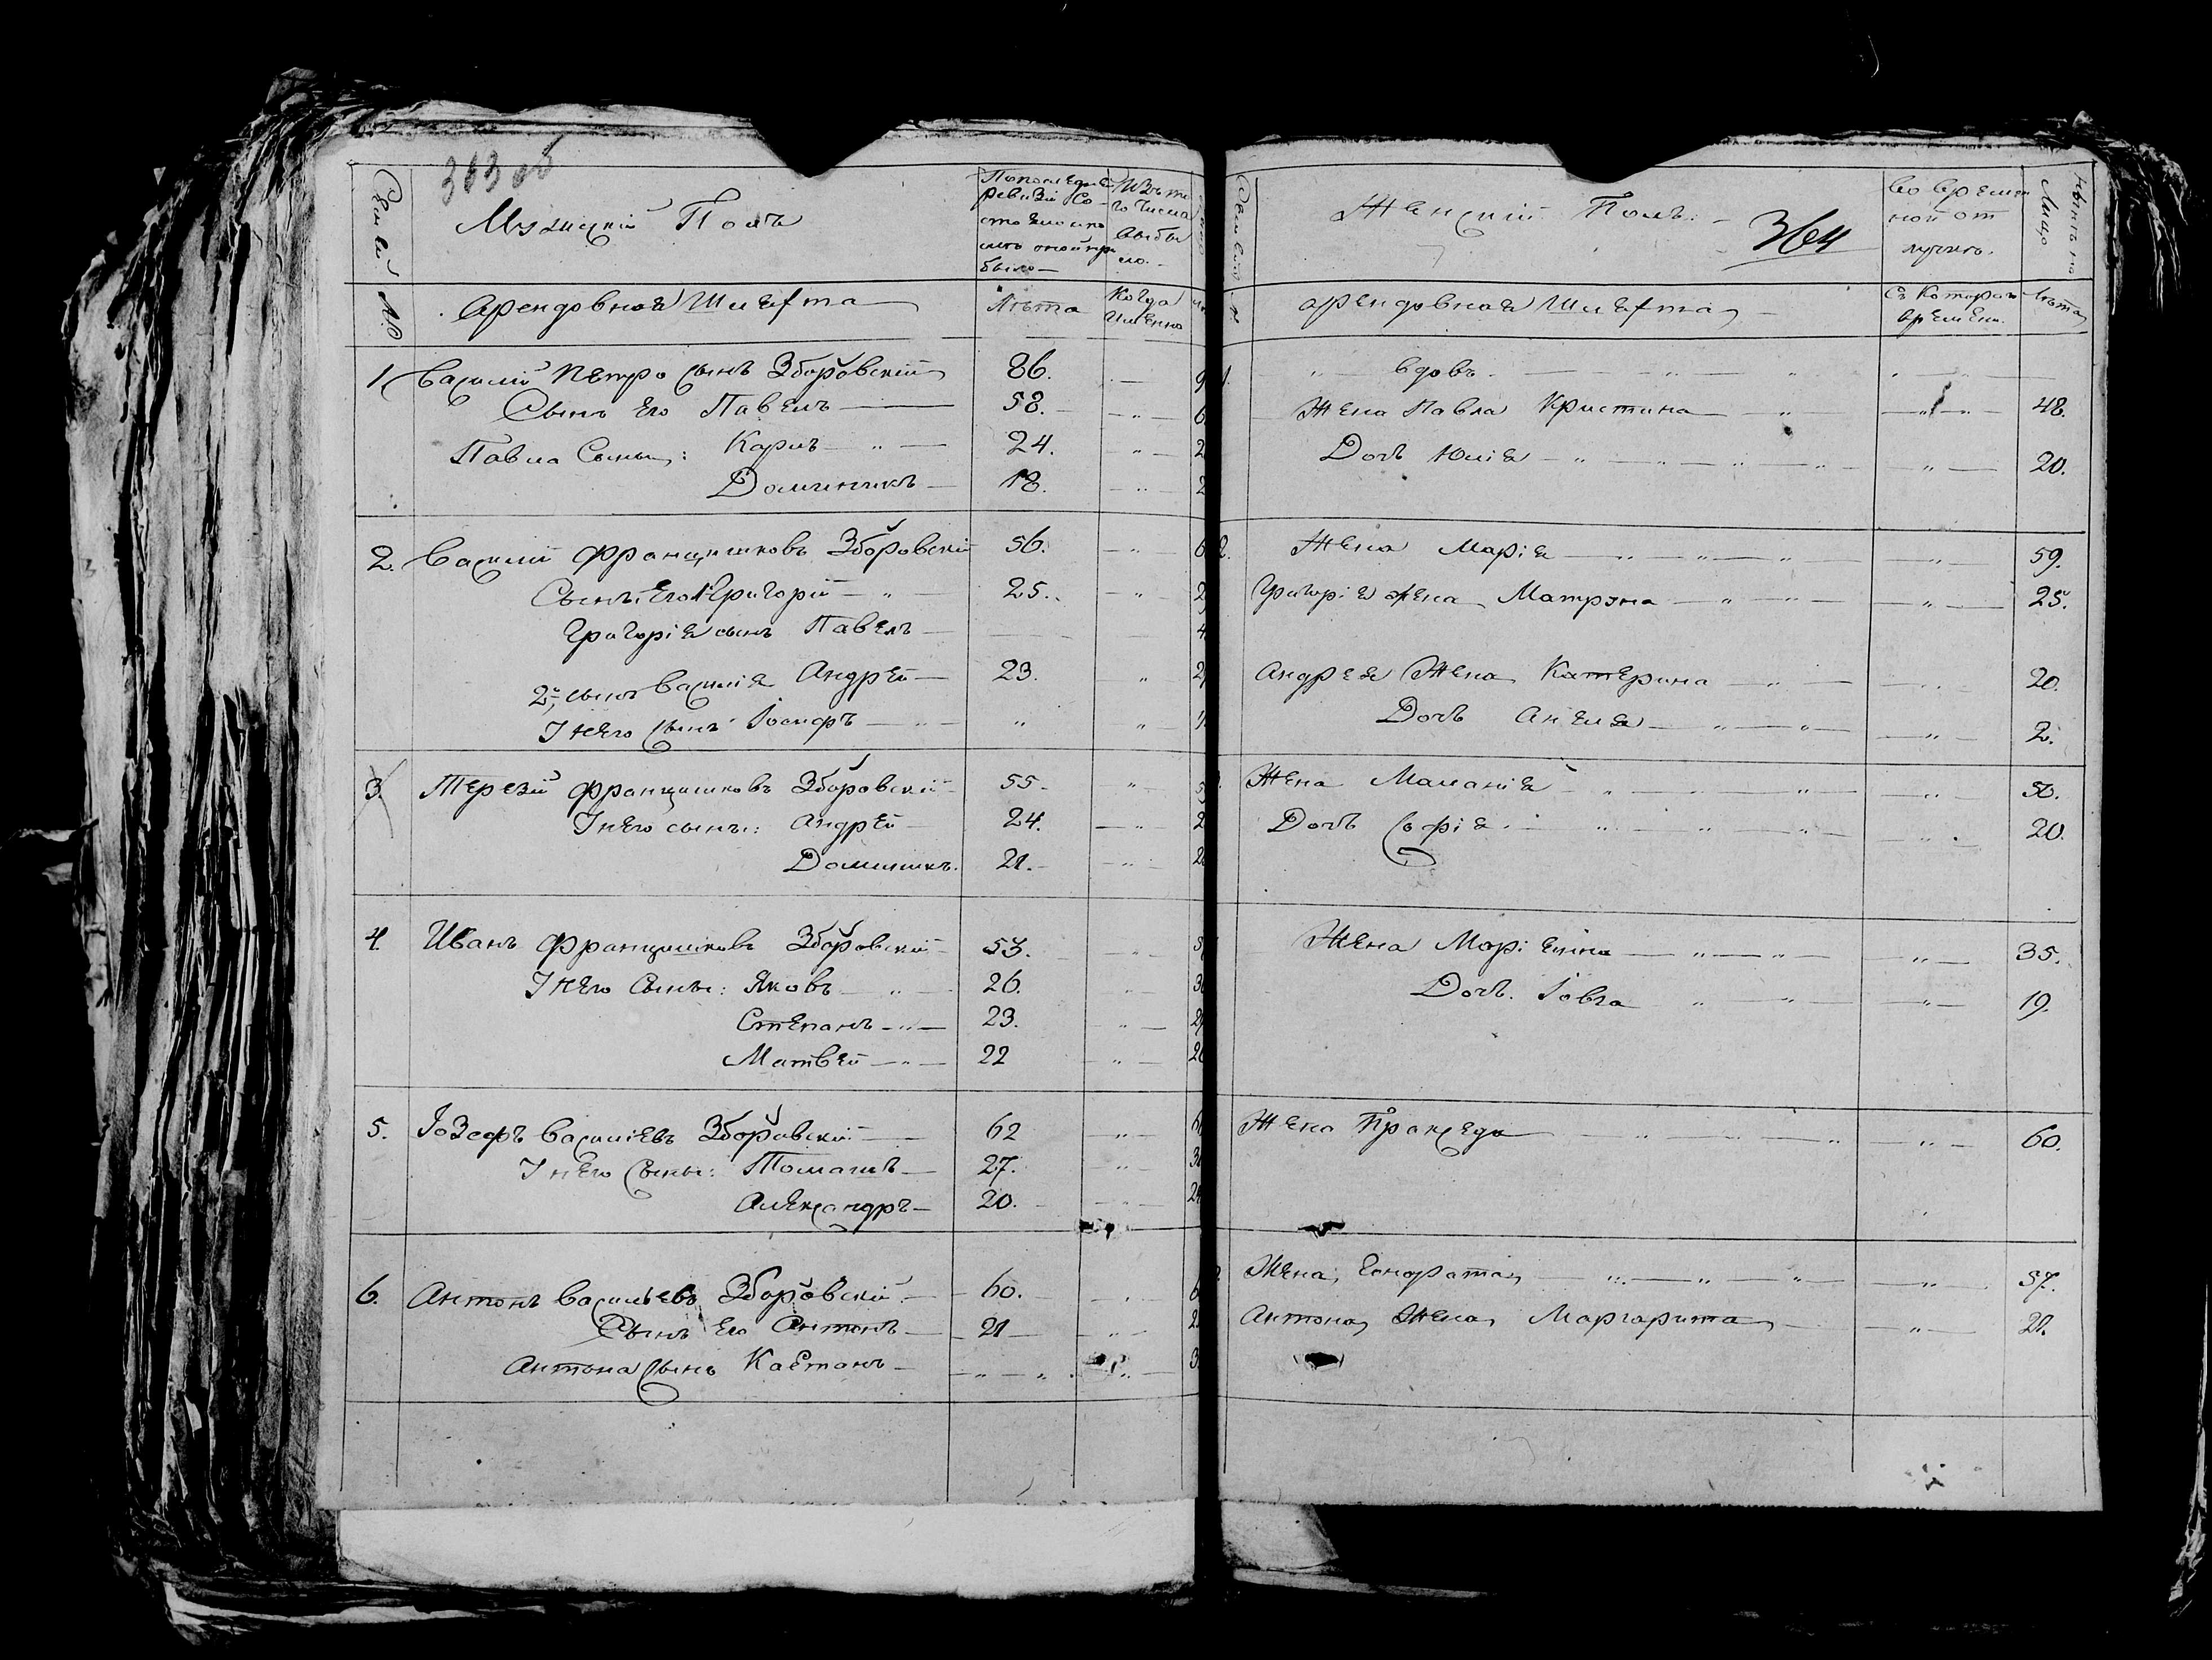 363 об
Семьи
Мужескій Полъ
По последней
ревизіи со-
стояло и по-
слѣ оной при
было
Изъ то
го числа
выбы
ло.
№
Арендовная Шляхта
Лѣта
Когда
именно
1. Василий Петро сынъ Зборовский 86. 9
Сынъ Его Павелъ 58. 6
Павла Сыны: Карлъ 24. 2
Доминикъ 18. 2
2. Василий Францишковъ Зборовский 56. 6
Сынъ Его 1й Григорий 25. 2
Григорія сынъ Павелъ 4
2й сынъ Василія Андрей 23. 2
У него сынъ Іосифъ
3. Терезий Францишковъ Зборовский 55. 5
У него сыны: Андрей 24. 2
Доминикъ. 21. 2
4. Иванъ Францишковъ Зборовский 53. 5
У него Сыны: Яковъ 26. 3
Степанъ 23. 2
Матвей 22 2
5. Іозефъ Василіевъ Зборовский 62 6
У него Сыны: Томашъ 27. 3
Александръ 20. 2
6. Антонъ Васильевъ Зборовский 60. 6
Сынъ Его Антонъ 21 2
Антона Сынъ Каетанъ 3
Семьи
Женский Полъ.
364
Во времен
ной от
лучкѣ.
Нынѣ на
Лицо
№
Арендовная Шляхта
Съ котораго
времени.
Лѣта
1. вдовъ.
Жена Павла Кристина 48.
Дочь Юлія 20.
2. Жена Марія 59.
Григорія жена Матрона 25.
Андрея Жена Катерина 20.
Дочь Анеля 2.
Жена Маланія 50.
Дочь Софія 20.
Жена Маріянна 35.
Дочь. 19.
Жена Пракседа 60.
Жена Гонората 57.
Антона Жена Маргарита 21.